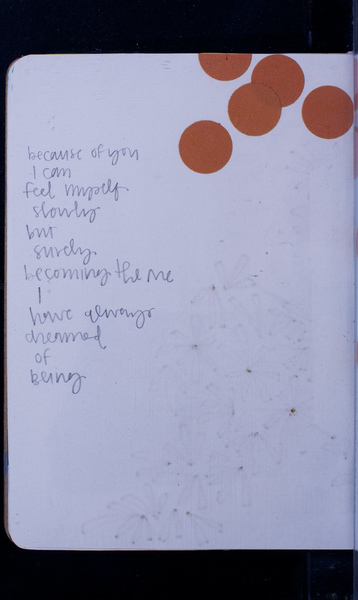 because of you
I can
feel myself
slowly
but
surely
becoming the me
I
have always
dreamed
of
being